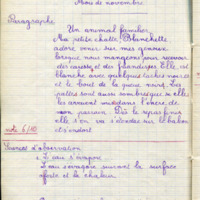 Mois de novembre
Paragraphe
Un animal familier
Ma petite chatte Blanchette
adore venir sur mes genoux
lorsque nous mangeons pour recevoir
des caresses et des friandises. Elle est
blanche avec quelques taches noires
et le bout de la queue noir. Les
pattes sont aussi sombres que si elle
les avait dans l'encre de
mon . Dès le repas fini,
elle s'en va s'étendre sur le
et s'endort
note 6/10
Sciences d'observation
L'eau s'évapore
L'eau s'évapore suivant la surface
offerte et la chaleur.